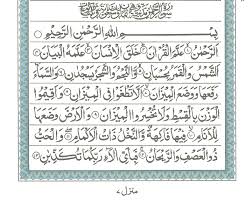 بِسْمِ اللّٰهِ الرَّحْمٰنِ الرَّحِيْمِ
اَلرَّحْمٰنُ عَلَّمَ الْقُرْاٰنَ خَلَقَ الْاِنْسَانَ عَلَّمَهُ الْبَيَانَ
اَلشَّمْسُ وَالْقَمَرُ بِحُسْبَانٍ وَّالنَّجْمُ وَالشَّجَرُ يَسْجُدٰنِ وَالسَّمَآءَ
رَفَعَهَا وَوَضَعَ الْمِيْزَانَ اَلَّا تَطْغَوْا فِى الْمِيْزَانِ وَاَقِيْمُوا
الْوَزْنَ بِالْقِسْطِ وَلَا تُخْسِرُوا الْمِيْزَانَ وَالْاَرْضَ وَضَعَهَا
لِلْاَنَامِ فِيْهَا فَاكِهَةٌ وَّالنَّخْلُ ذَاتُ الْاَكْمَامِ وَالْحَبُّ
ذُو الْعَصْفِ وَالرَّيْحَانُ فَبِاَىِّ اٰلَآءِ رَبِّكُمَا تُكَذِّبٰنِ
منزل ٧